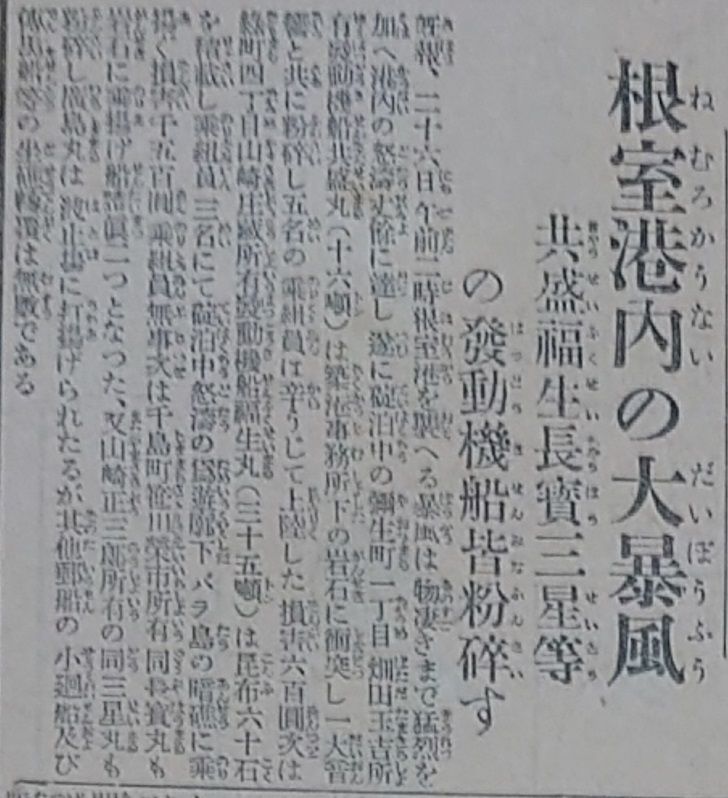 根室港内の大暴風
共盛福生長寶三星等
の發動機船皆粉碎す
既報、二十六日午前二時根室港を襲へる暴風は物凄きまで猛烈を
加へ港内の怒濤丈餘に達し遂に碇泊中の彌生町一丁目畑田玉吉所
有發動機船共盛丸(十六噸)は築港事務所下の岩石に衝突し一大音
響と共に粉碎し五名の乘組員は辛うじて上陸した損害六百圓次は
綠町四丁目山崎庄藏所有發動機船福生丸(三十五噸)は昆布六十石
を積載し乘組員三名にて碇泊中怒濤の爲遊廓下バラ島の暗礁に乘
揚く損害千五百圓乘組員無事次は千島町笹川榮市所有同長寶丸も
岩石に乘揚げ船體眞二つとなつた、又山崎正三郎所有の同三星丸も
粉碎し廣島丸は波止塲に打揚げられたるが其他郵船の小廻船及び
船等の坐礁轉覆は無數である